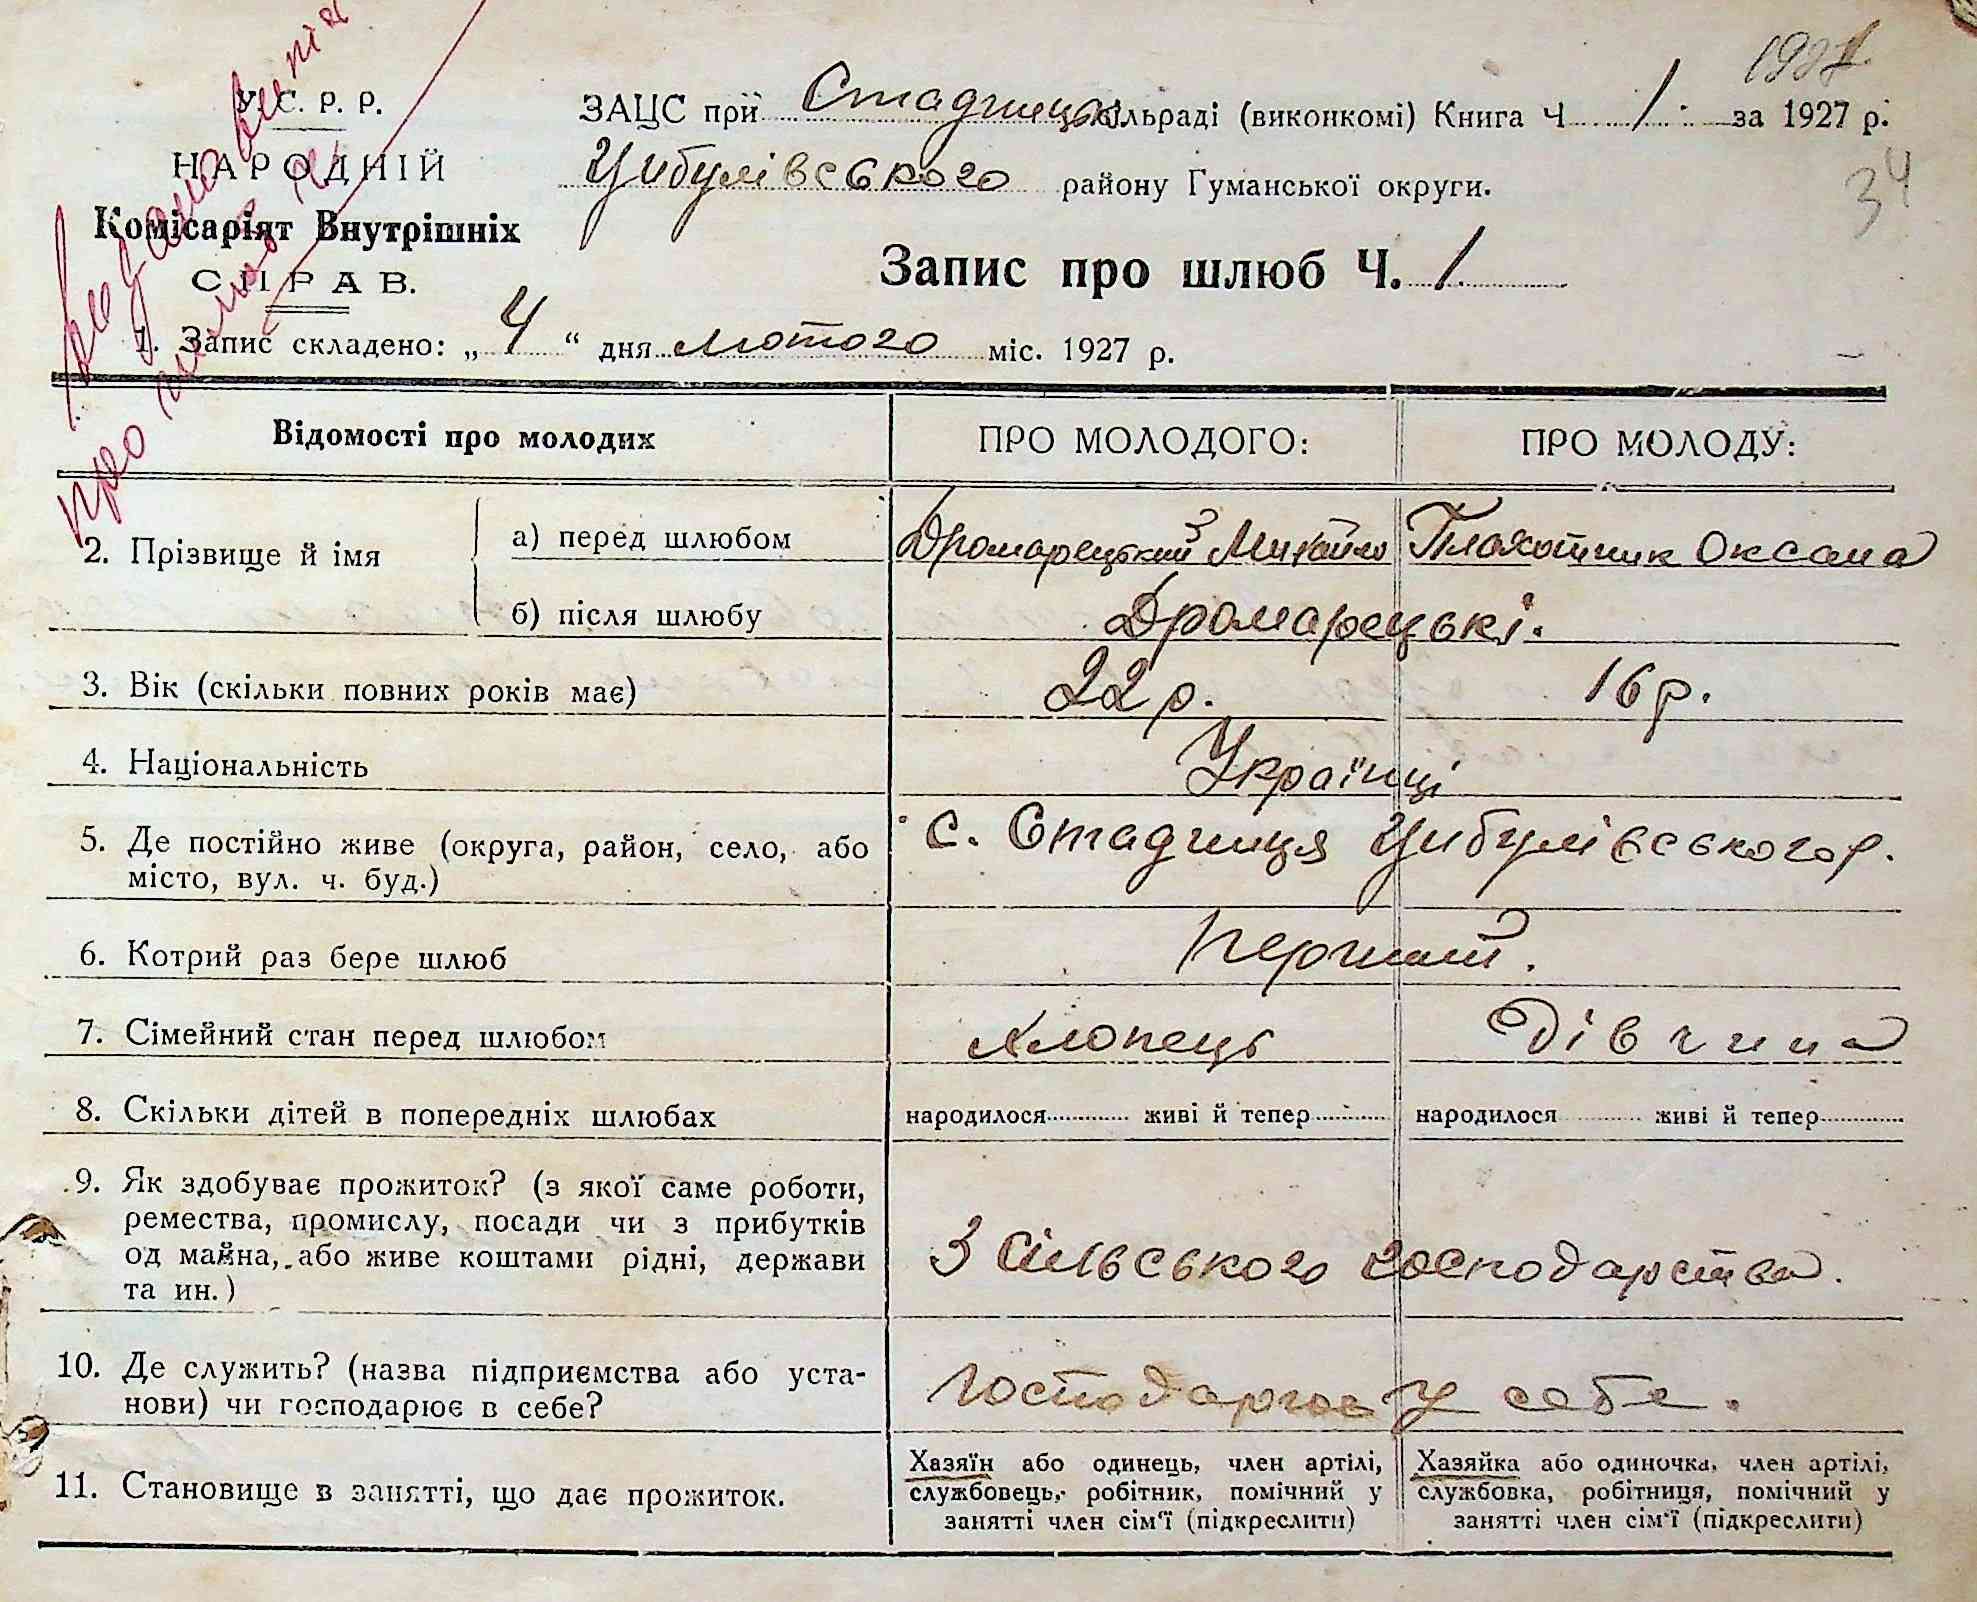 1927.
У. С. Р. Р.
НАРОДНІЙ
Комісаріят Внутрішніх
СПРАВ.
видано випис
про шлюб
ЗАЦС при Стадницькій сільраді (виконкомі) Книга Ч 1. за 1927 р.
Цибулівського району Гуманської округи.
34
Запис про шлюб Ч. 1.
1. Запис складено: „ 4 “ дня лютого міс. 1927 р.
Відомості про молодих ПРО МОЛОДОГО: ПРО МОЛОДУ:
2. Прізвище й імя а) перед шлюбом Дромарецький Михайло Плахотник Оксана
б) після шлюбу Дромарецькі.
3. Вік (скільки повних років має) 22 р. 16 р.
4. Національність Українці
5. Де постійно живе (округа, район, село, або
місто, вул. ч. буд.) с. Стадниця Цибулівського р.
6. Котрий раз бере шлюб Перший.
7. Сімейний стан перед шлюбом хлопець дівчина
8. Скільки дітей в попередніх шлюбах народилося живі й тепер народилося живі й тепер
9. Як здобуває прожиток? (з якої саме роботи,
ремества, промислу, посади чи з прибутків
од майна, або живе коштами рідні, держави
та ин.) З сільського господарства.
10. Де служить? (назва підприємства або уста-
нови) чи господарює в себе? Господарює у себе.
11. Становище в занятті, що дає прожиток.
Хазяїн або одинець, член артілі,
службовець, робітник, помічний у
занятті член сім'ї (підкреслити)
Хазяйка або одиночка, член артілі,
службовка, робітниця, помічний у
занятті член сім'ї (підкреслити)